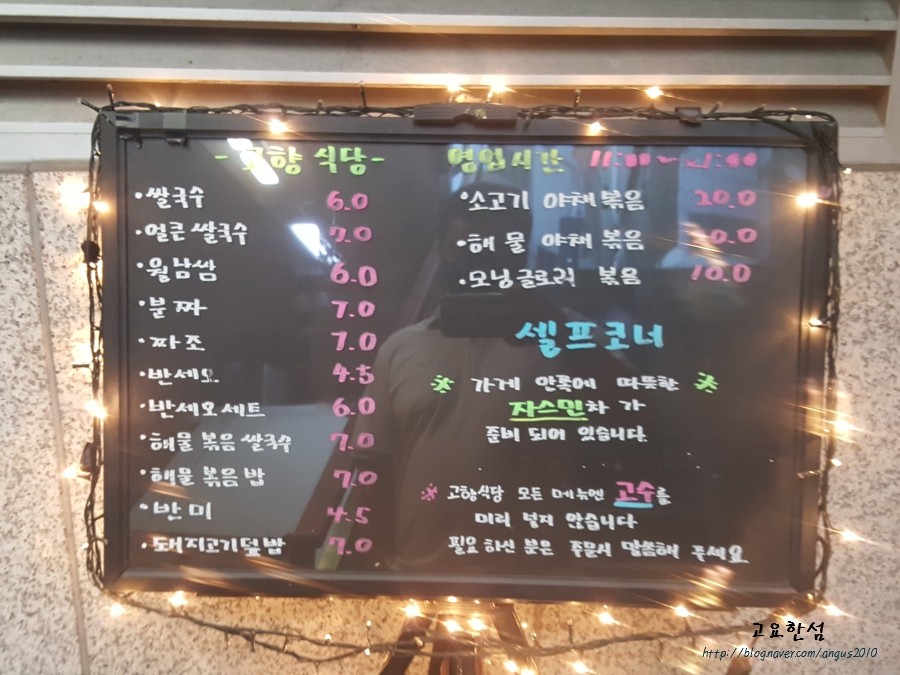 향 식당-
·쌀국수 6.0
·얼큰 쌀국수 7.0
·월남쌈 6.0
·분짜 7.0
·짜조 7.0
·반세오 4.5
·반세오세트 6.0
·해물 볶음 쌀국수 7.0
·해물 볶음 밥 7.0
·반미 4.5
·돼지고기덮밥 7.0
영업시간 11:00~
·소고기 야채 볶음 20.0
·해물 야채 볶음
·모닝글로리 볶음 10.0
셀프코너
가게 안쪽에 따뜻한
자스민차 가
준비 되어 있습니다.
고향식당 모든 메뉴엔 고수를
미리 넣지 않습니다
필요하신 분은 주문시 말씀해 주세요
고요한섬
http://blog.naver.com/angus2010